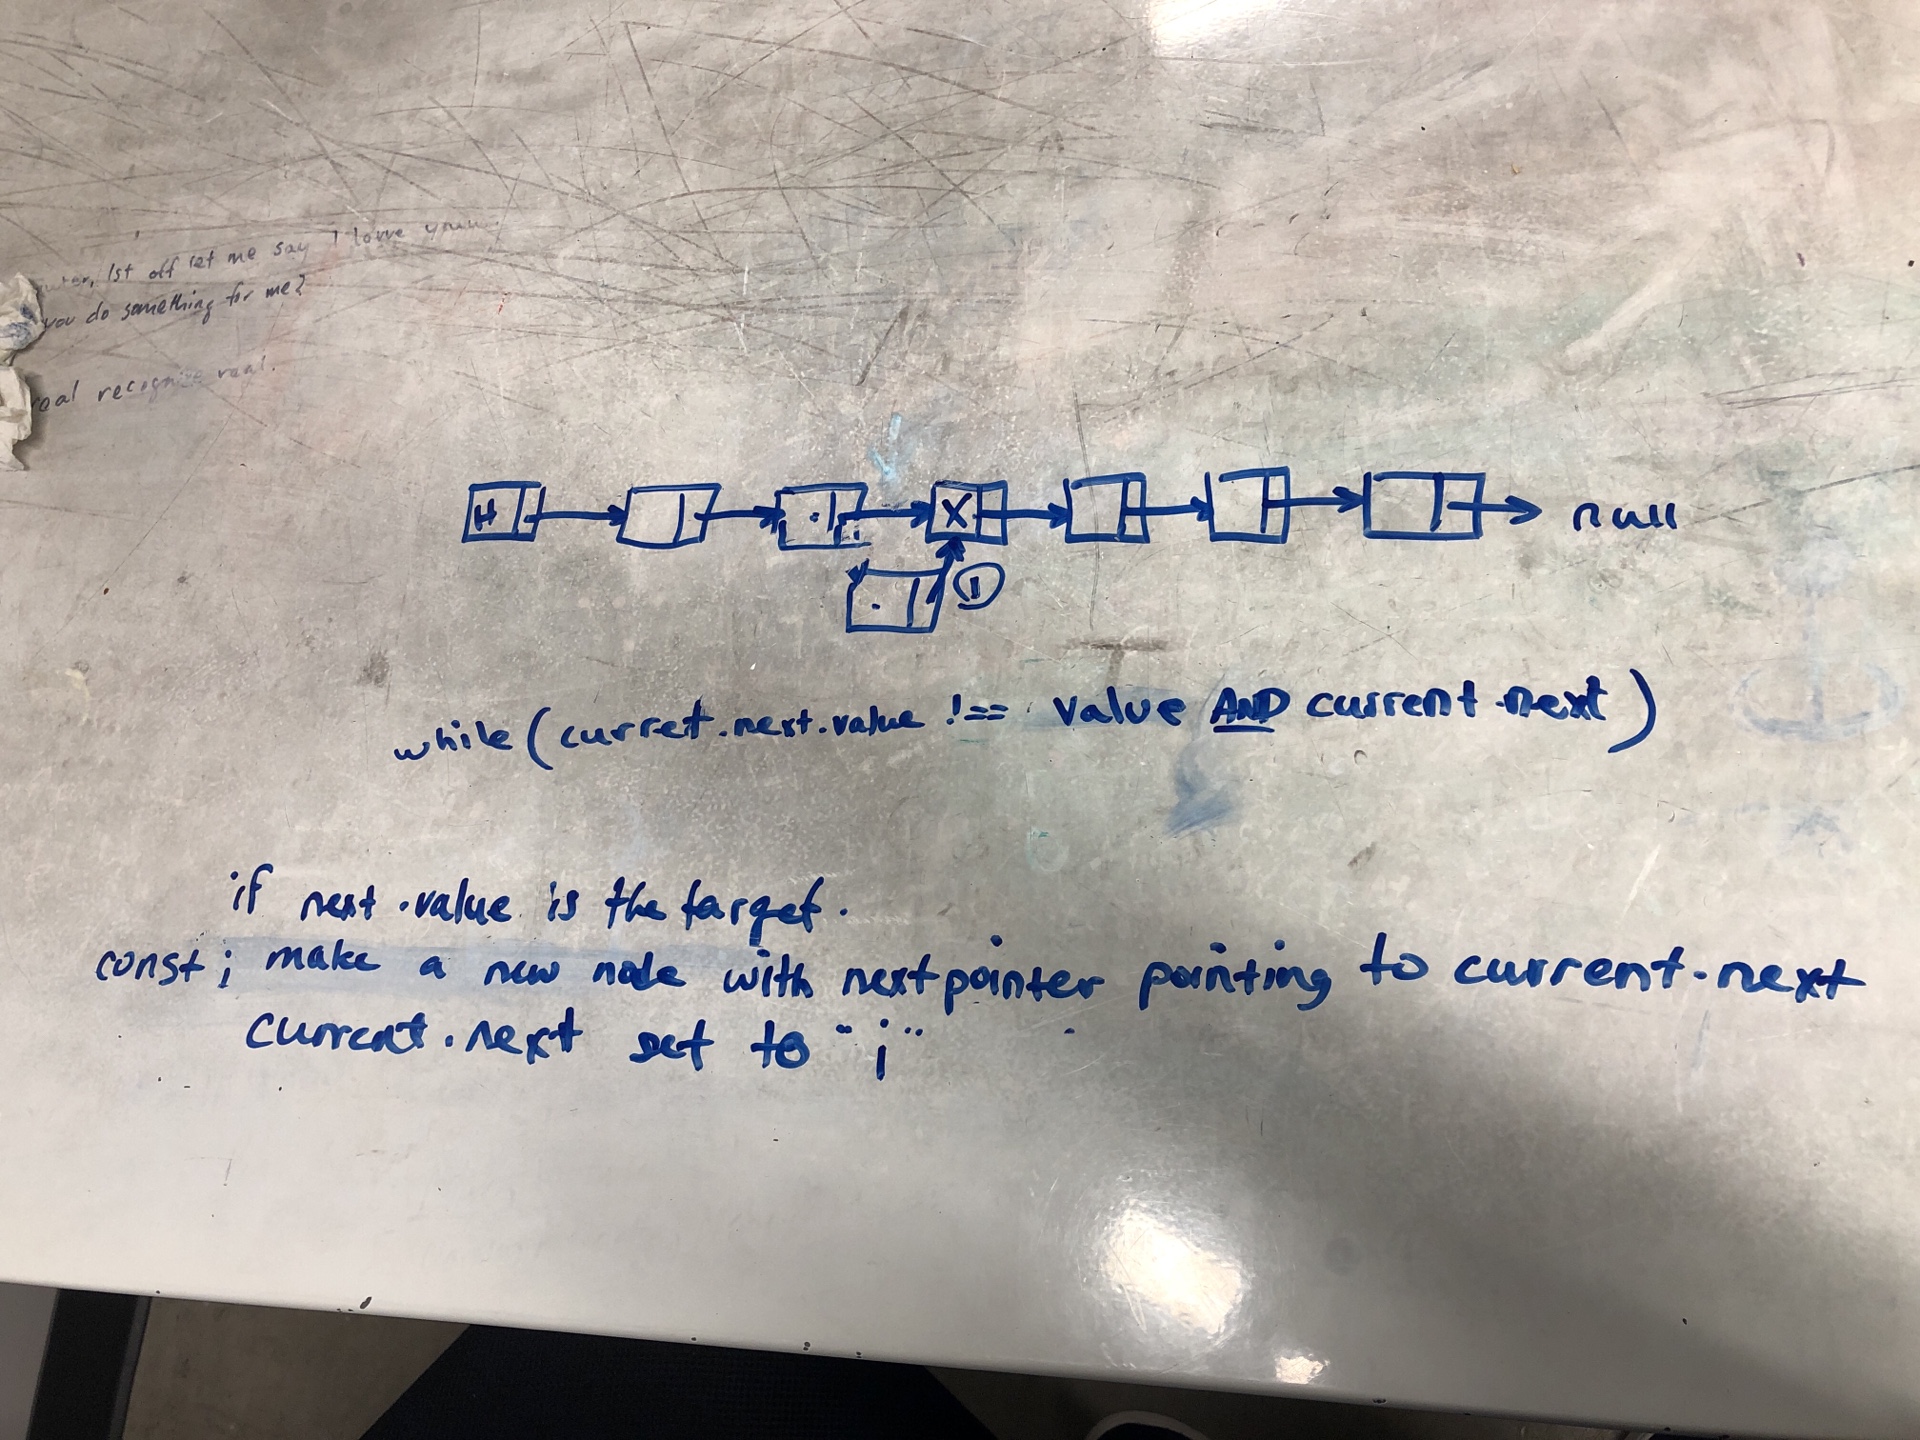 1st off let me say I love
you do something for me?
real recognize real.
H X null
1
while (curret.next.value !== value AND current.next)
if next.value is the target.
const i make a new node with next pointer pointing to current.next
current.next set to "i"